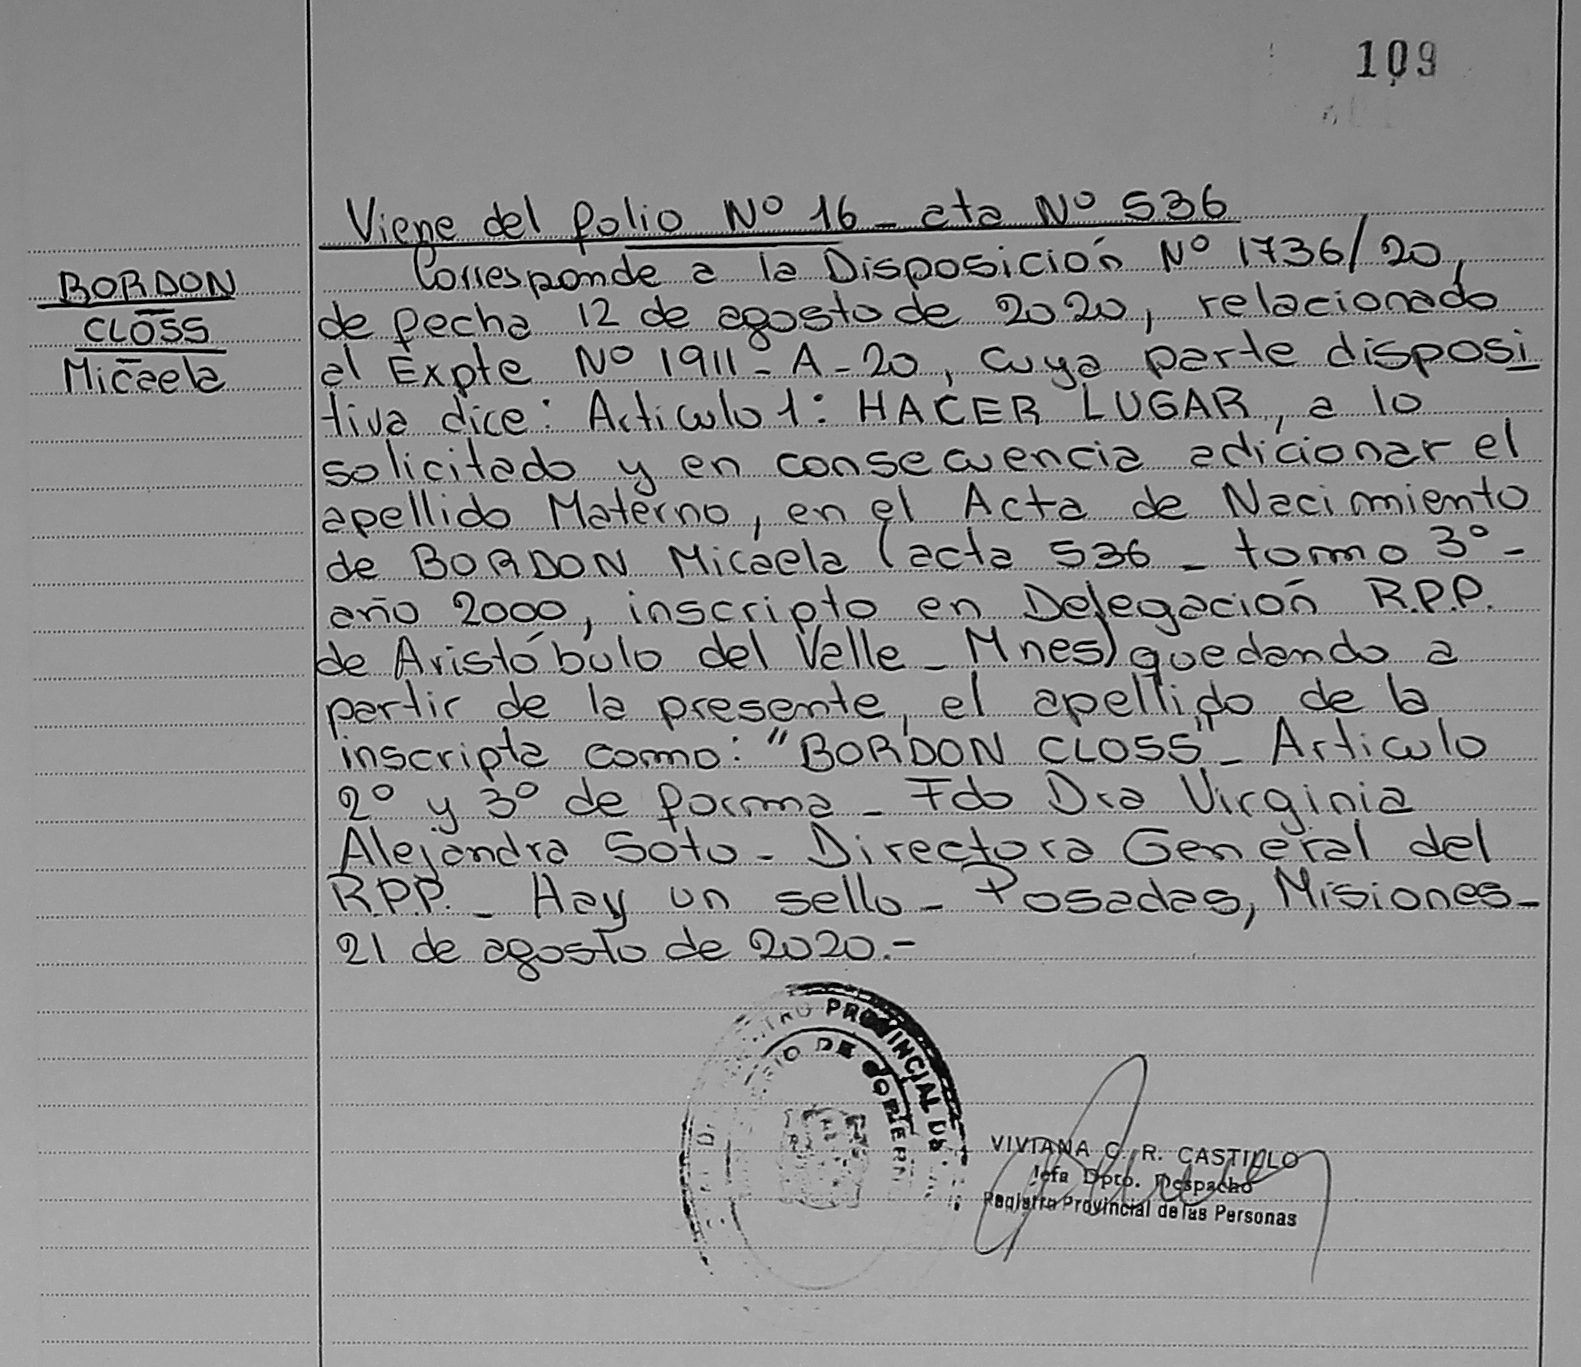 109
Viene del folio Nº 16 - cta Nº 536
BORDON
CLOSS
Micaela
Corresponde a la Disposición Nº 1736/20,
de fecha 12 de agosto de 2020, relacionado
al Expte Nº 1911 - A - 20, cuya parte disposi
tiva dice: Articulo 1: HACER LUGAR, a lo
solicitado y en consecuencia adicionar el
apellido Materno, en el Acta de Nacimiento
de BORDON Micaela (acta 536 - tomo 3º -
año 2000, inscripto en Delegación R.P.P.
de Aristóbulo del Valle - Mnes) quedando a
partir de la presente, el apellido de la
inscripta como: "BORDON CLOSS" - Articulo
2º y 3º de forma - Fdo Dra Virginia
Alejandra Soto - Directora General del
R.P.P. - Hay un sello - Posadas, Misiones -
21 de agosto de 2020.-
PROVINCIAL DE
IO DE GOBIERN
VIVIANA C. R. CASTILLO
Jefa Dpto. Despacho
Registro Provincial de las Personas